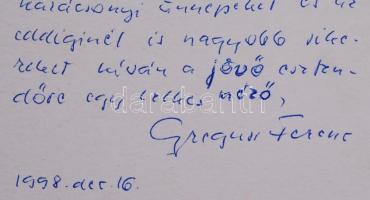 karácsonyi ünnepeket és az
eddiginél is nagyobb sike-
reket kíván a jövő eszten-
dőre egy lelkes néző,
Gregus Ferenc
1998. dec. 16.
darabanth